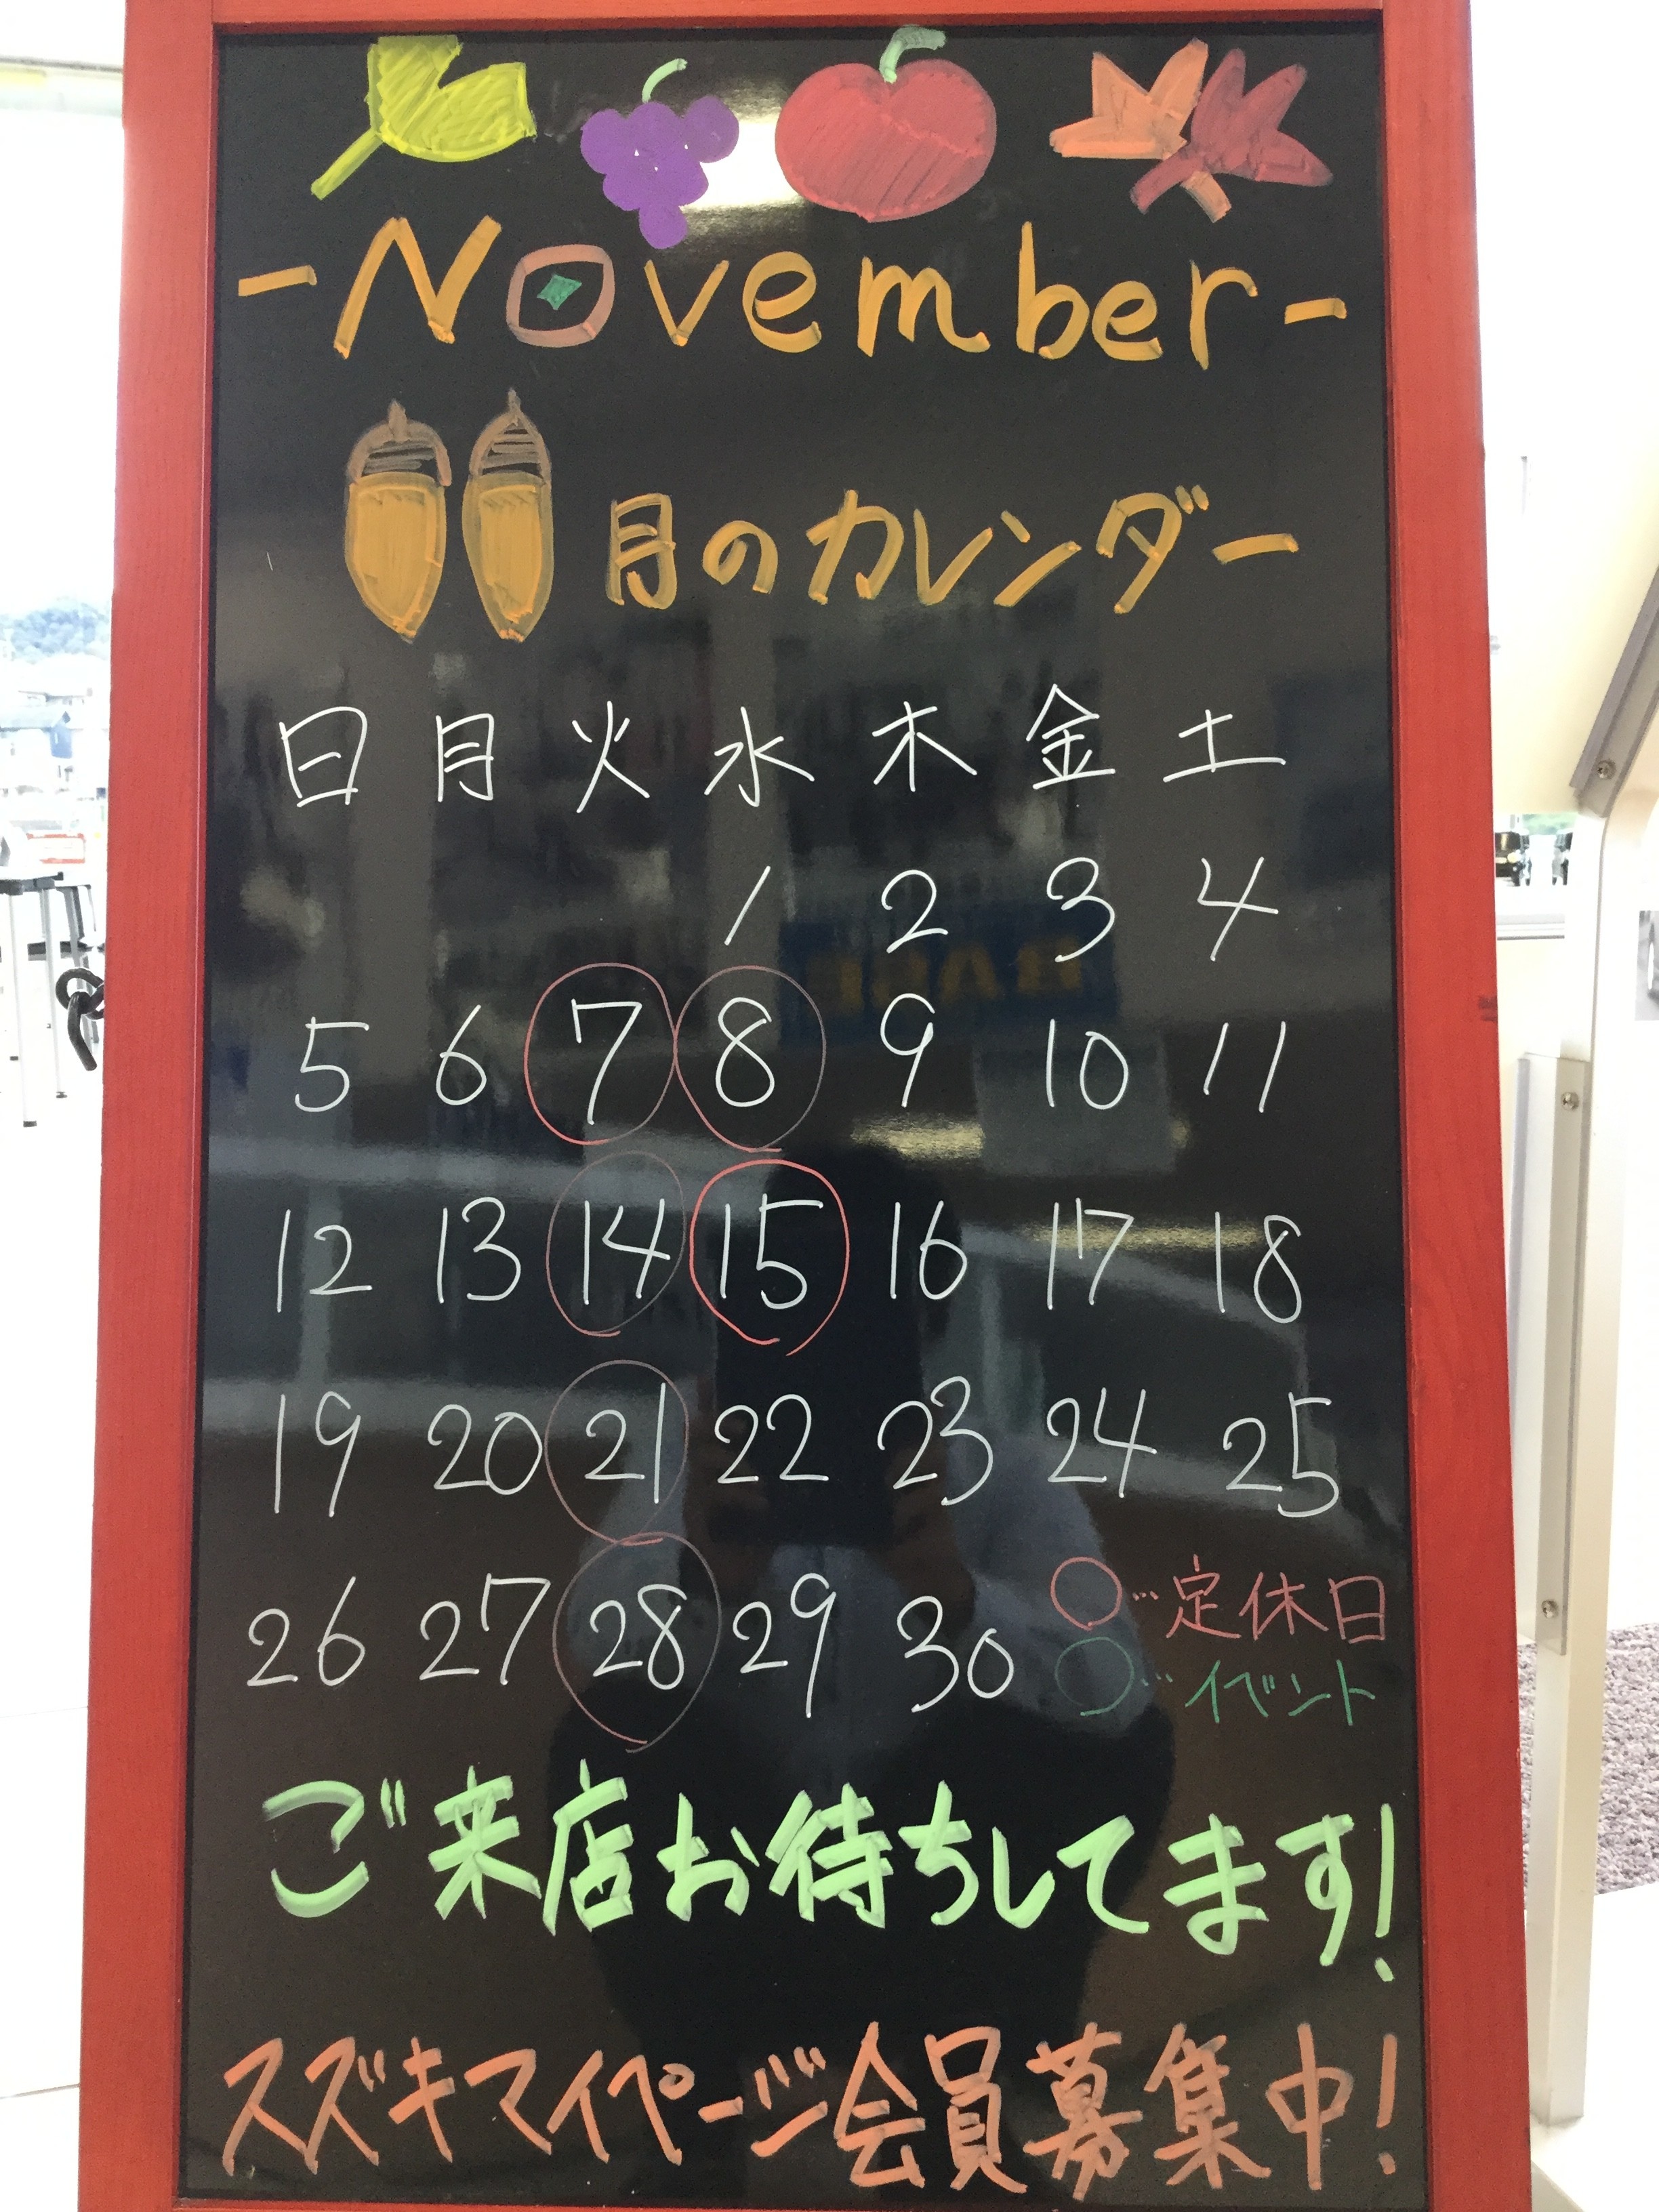 - November -
月のカレンダー
日 月 火 水 木 金 土
1 2 3 4
5 6 7 8 9 10 11
12 13 14 15 16 17 18
19 20 21 22 23 24 25
26 27 28 29 30
○…定休日
○…イベント
ご来店お待ちしてます!
スズキマイページ会員募集中!